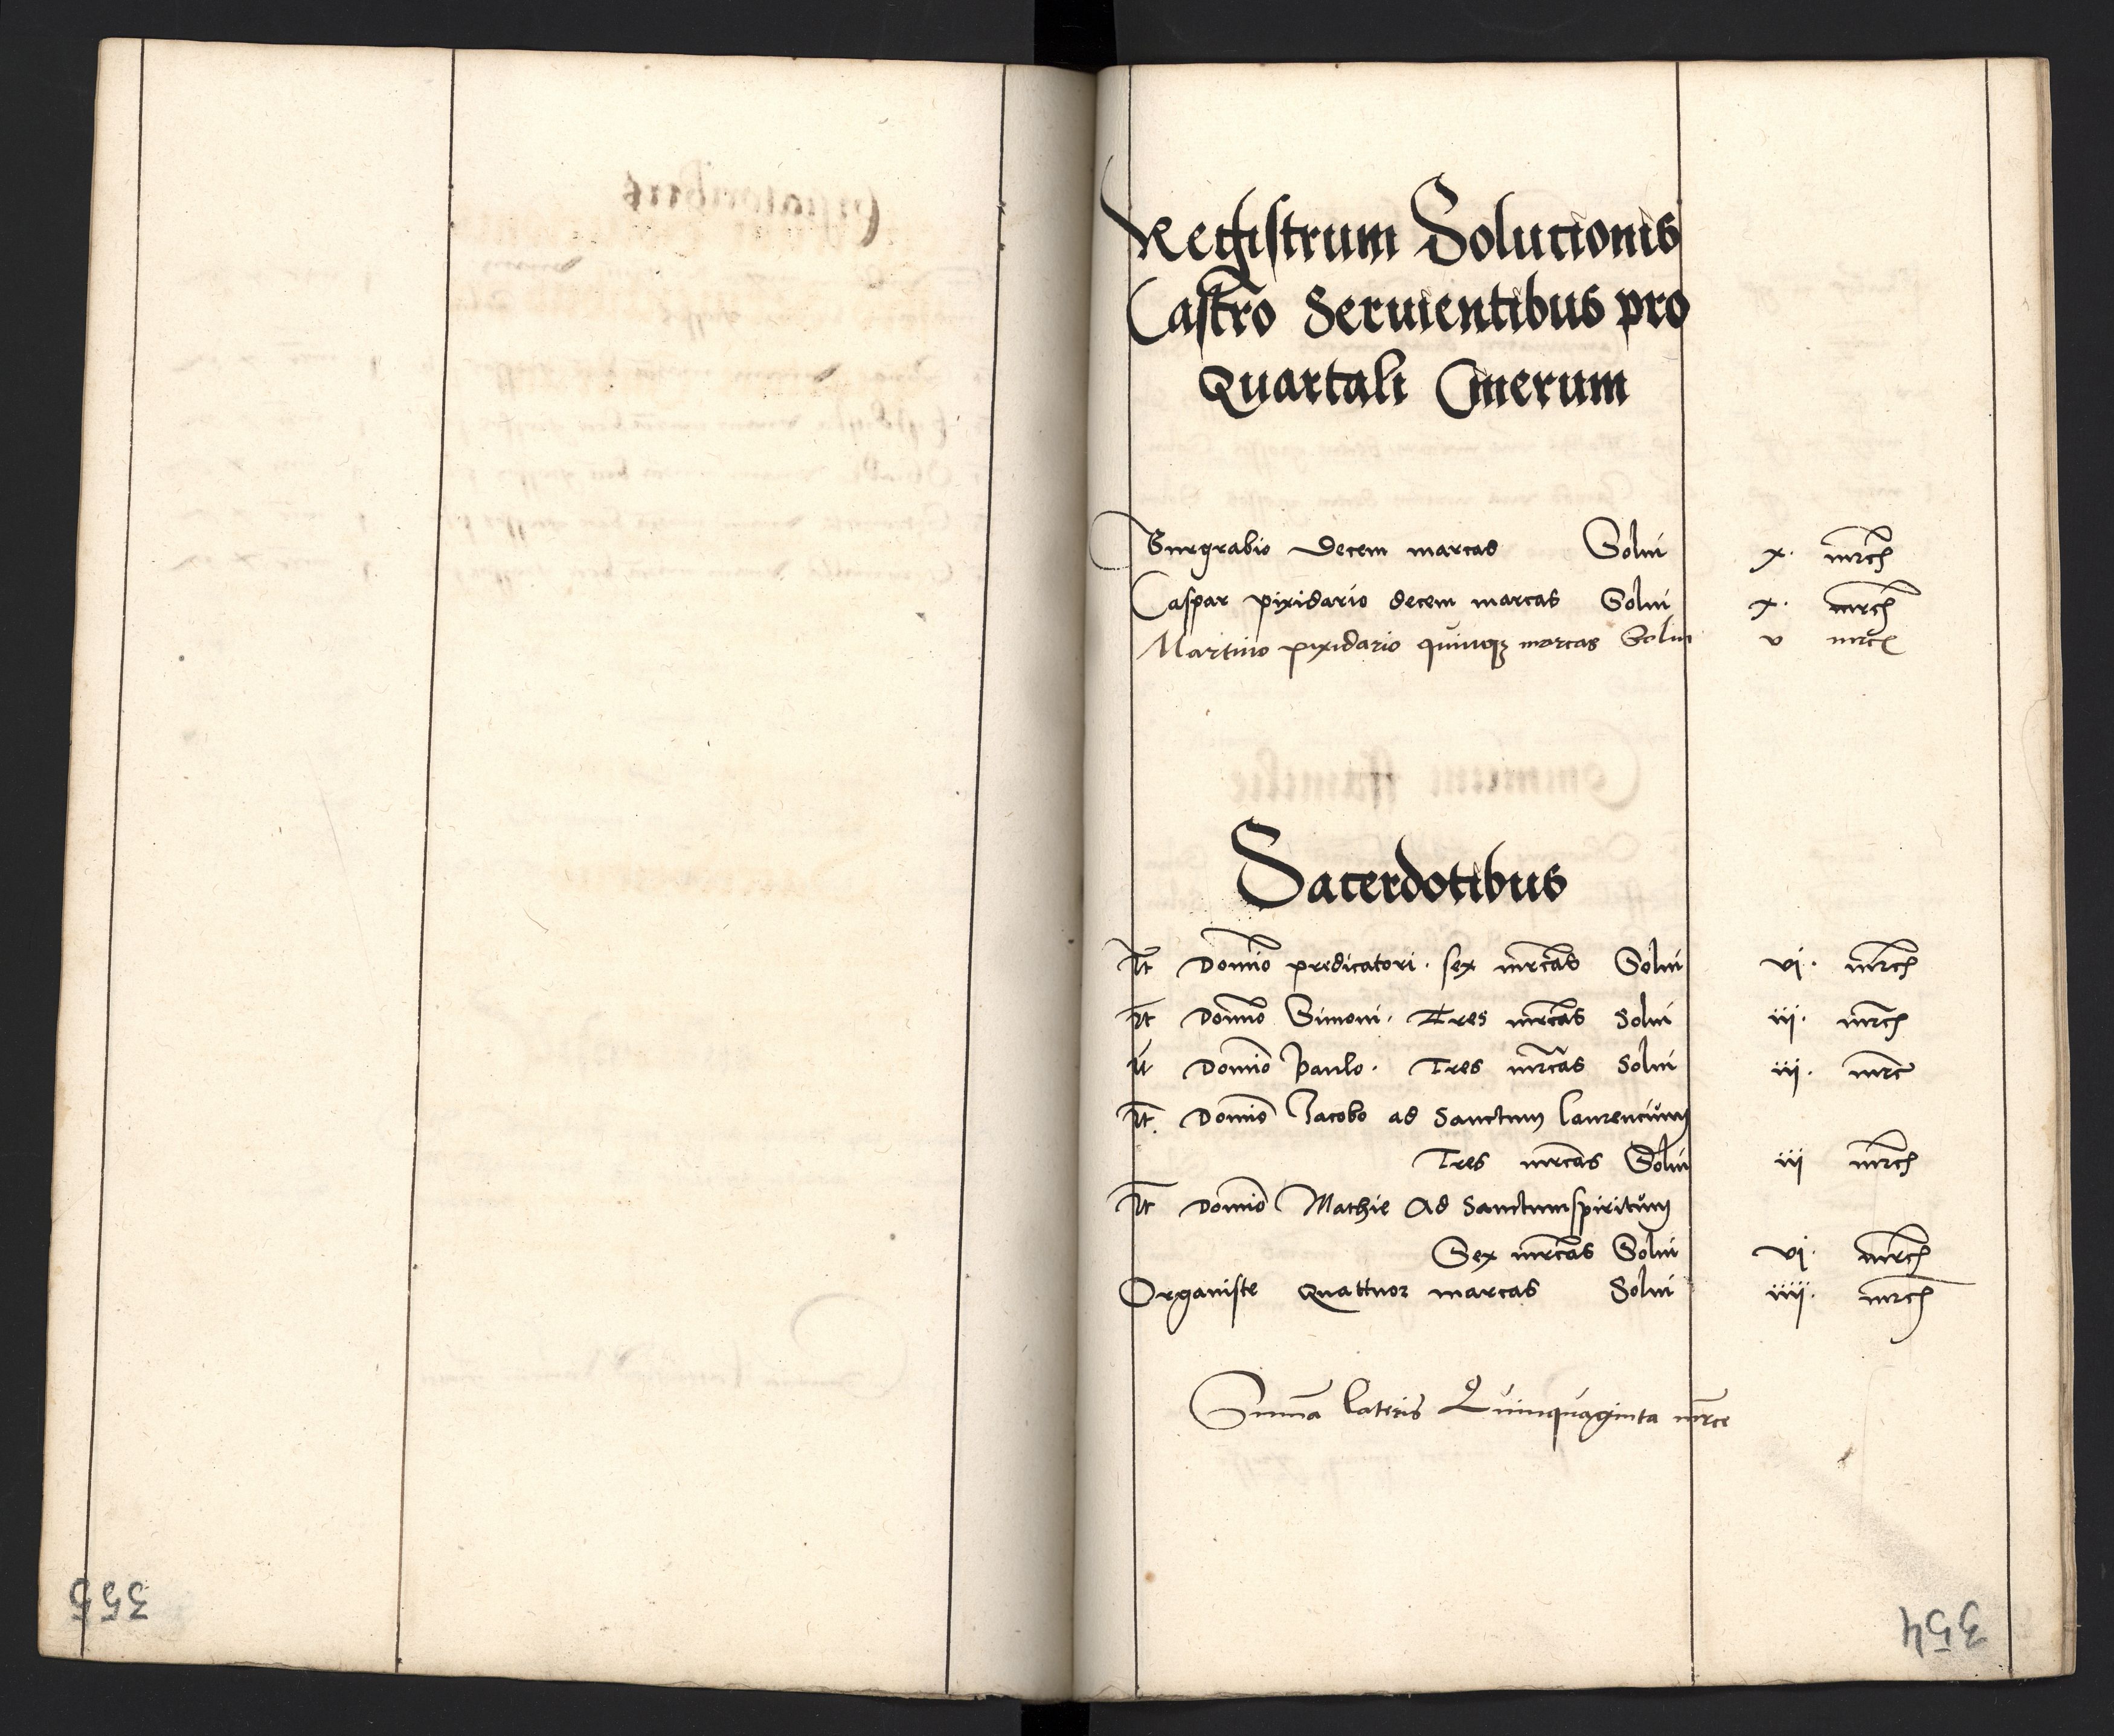 Registrum Solucionis
Castro Seruientibus pro
Quartali Cinerum
Burgrabio Decem marcas Solui x. mrc
Caspar pixidario decem marcas Solui x. mrc
Martino pixidario quinqz marcas Solui v mrc
Sacerdotibus
It Domino predicatori. sex mrcas Solui vi. mrc
It Domino Simoni. Tres mrcas Solui iii. mrc
It Domino Paulo. Tres mrcas Solui iii. mrc
It. Domino Jacobo ad Sanctum Laurencium
Tres mrcas Solui iii mrc
It Domino Mathie Ad Sanctumspiritum
Sex mrcas Solui vi. mrc
Organiste Quattuor marcas Solui iiii. mrc
Suma lateris Quinquaginta mrce
355
354